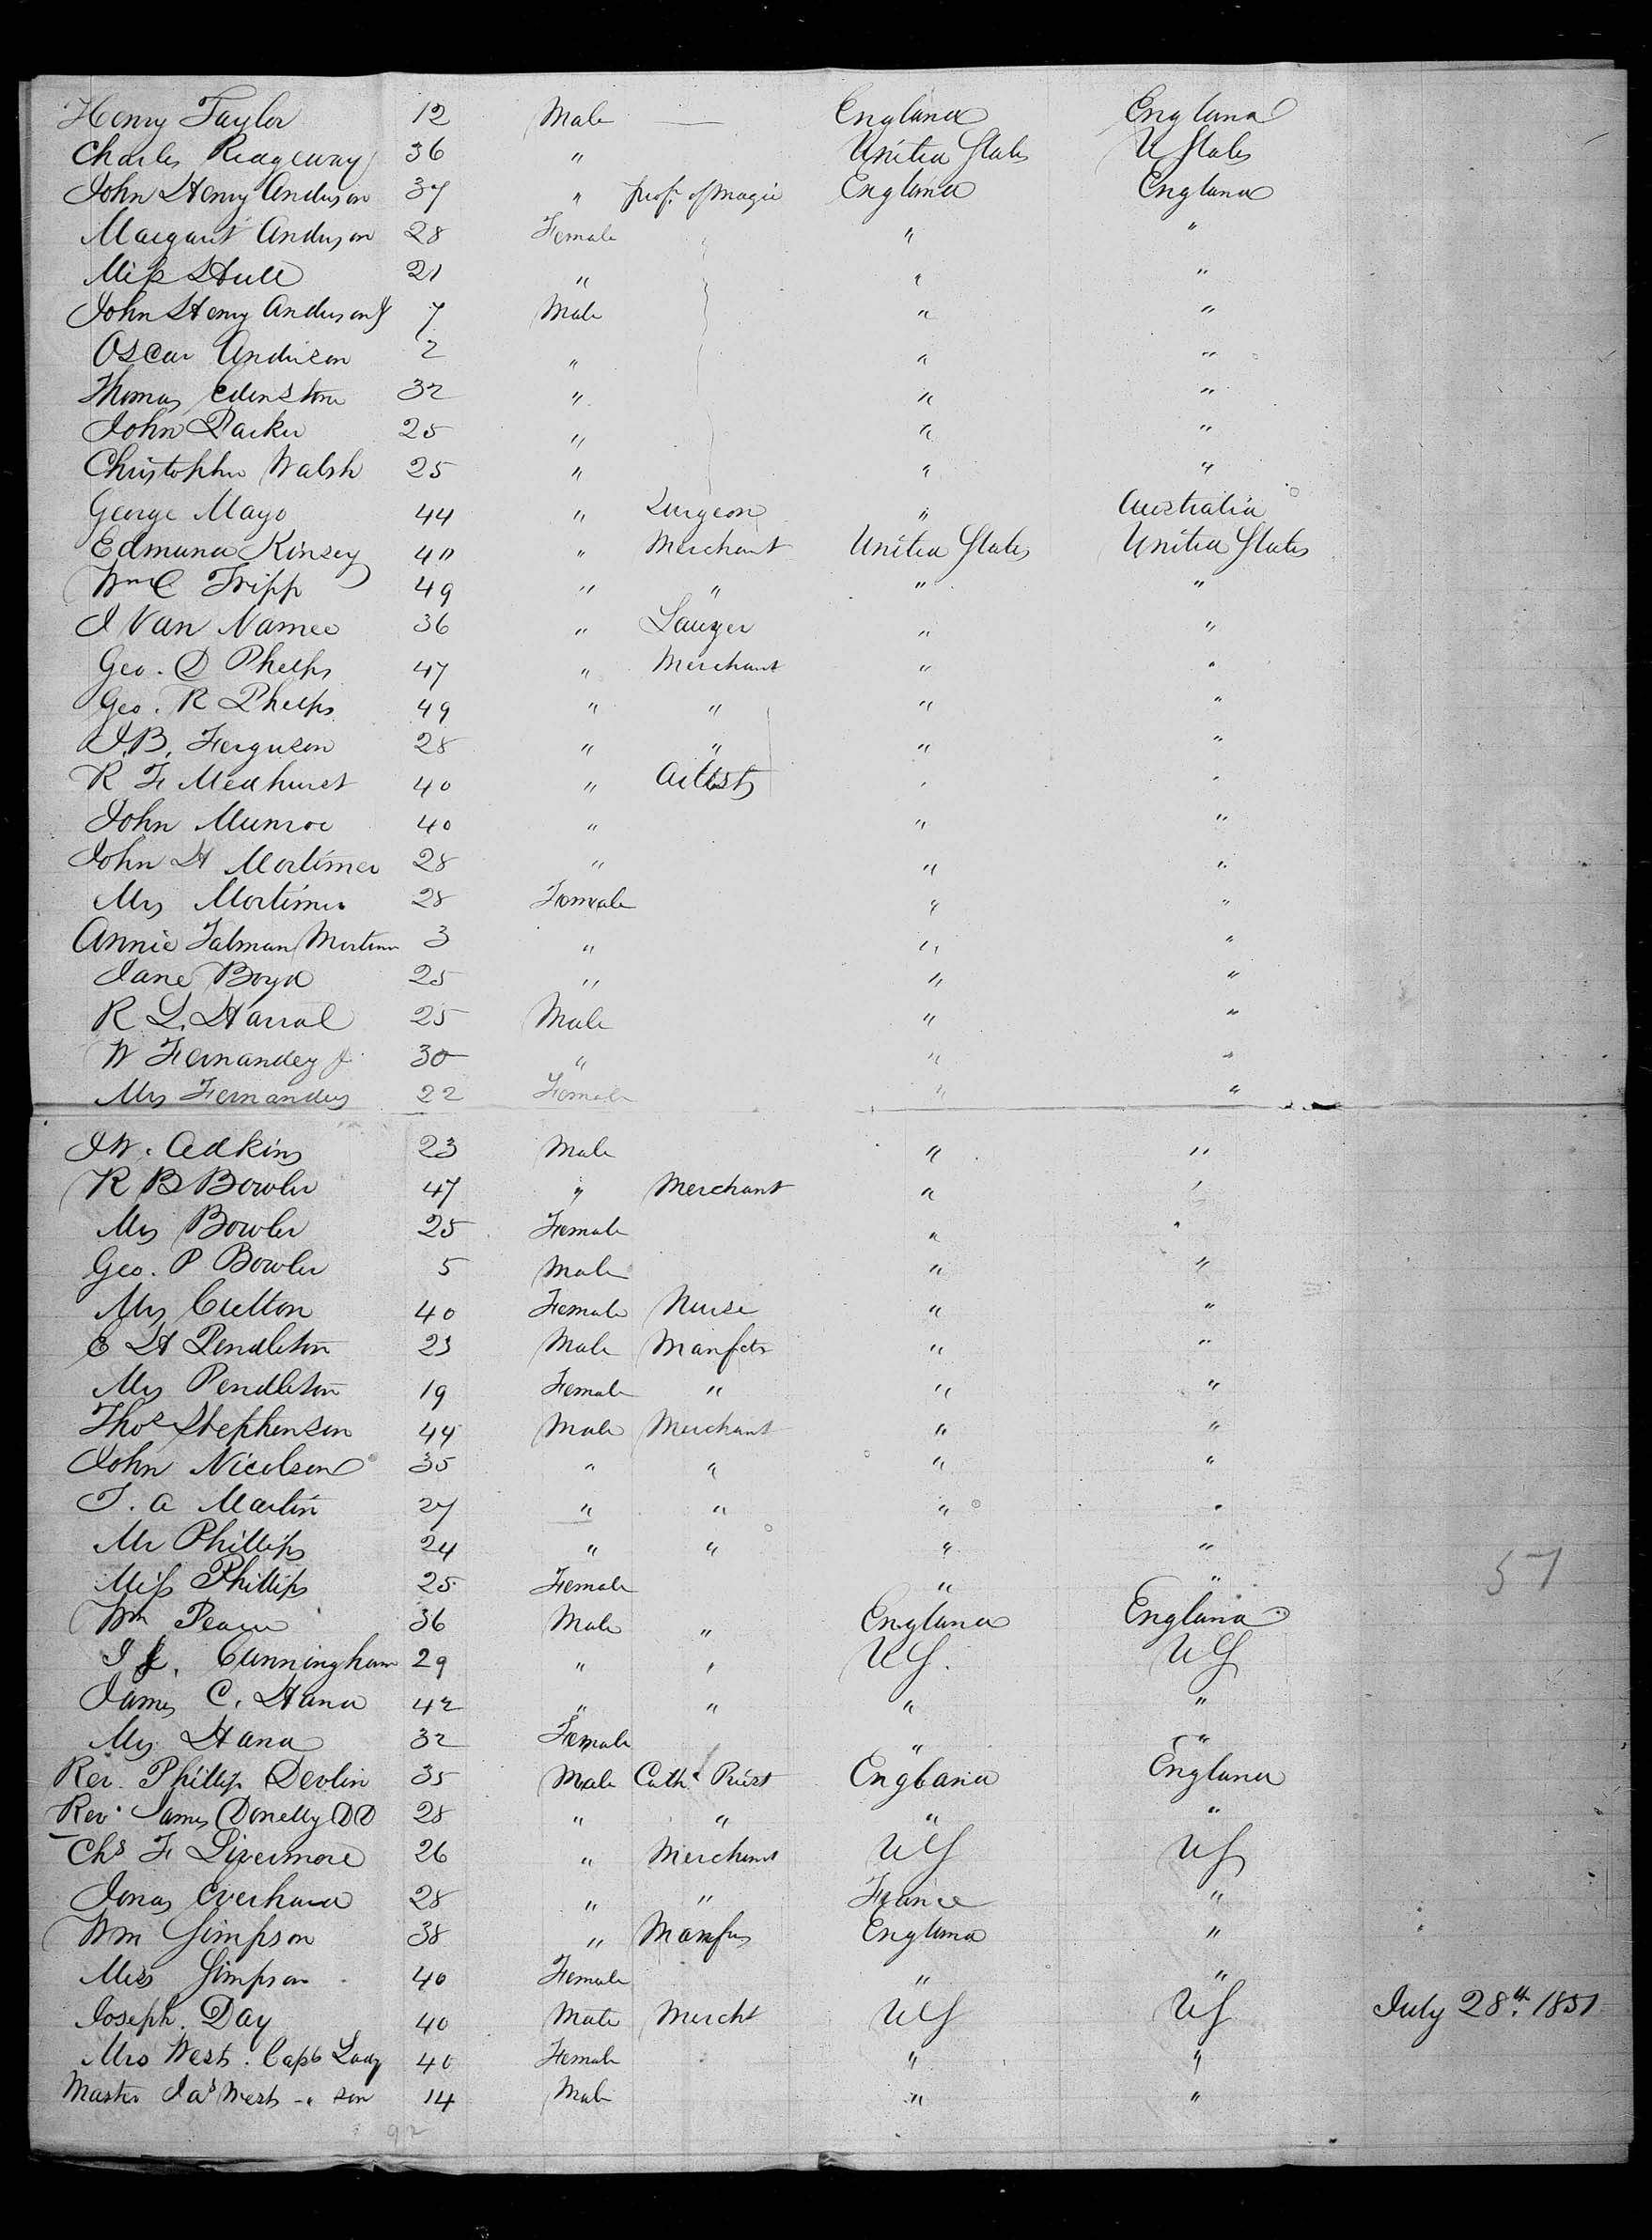 Henry Taylor 12 Male — England England
Charles Ridgeway 36 " United States U States
John Henry Anderson 37 " prof. of Magic England England
Margaret Anderson 28 Female " "
Miss Hull 21 " " "
John Henry Anderson Jr 7 Male " "
Oscar Anderson 2 " " "
Thomas Edenstone 32 " " "
John Parker 25 " " "
Christopher Walsh 25 " " "
George Mayo 44 " Surgeon " Australia
Edmund Kinsey 40 " Merchant United States United States
Wm C Tripp 49 " " " "
J Van Namee 36 " Lawyer " "
Geo. D Phelps 47 " Merchant " "
Geo. R Phelps 49 " " " "
J.B. Ferguson 28 " " " "
R F Medhurst 40 " Artist " "
John Munroe 40 " " "
John H Mortimer 28 " " "
Mrs Mortimer 28 Female " "
Annie Talman Mortimer 3 " " "
Jane Boyd 25 " " "
R L. Harral 25 Male " "
W Fernandez Jr 30 " " "
Mrs Fernandez 22 Female " "
J W. Adkins 23 Male " "
R B Bowler 47 " Merchant " "
Mrs Bowler 25 Female " "
Geo. P Bowler 5 Male " "
Mrs 40 Female Nurse " "
E H Pendleton 23 Male Manfctr " "
Mrs Pendleton 19 Female " " "
Thos Stephenson 44 Male Merchant " "
John Nicolson 35 " " " "
T. A Martin 27 " " " "
Mr Phillips 24 " " " "
Miss Phillips 25 Female " "
57
Wm 36 Male " England England
J Cunningham 29 " " US. US
James C. Hand 42 " " " "
Mrs Hand 32 Female " "
Rev. Phillip Devlin 35 Male Cath. Priest England England
Rev. James Donelly DD 28 " " " "
Chs F Livermore 26 " Merchant US US
Jonas Everhard 28 " " France "
Wm Simpson 38 " Manfrs England "
Miss Simpson 40 Female " "
Joseph. Day 40 Male Mercht US US July 28th. 1851
Mrs West. Capts Lady 40 Female " "
Master Jas West - " son 14 Male " "
92